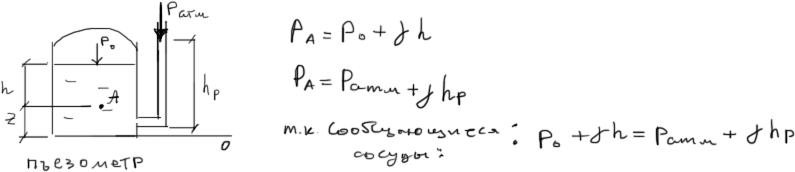 Pатм
P₀
h
A
z
hр
0
пьезометр
PА = P₀ + γh
PА = Pатм + γhр
т.к. сообщающиеся сосуды: P₀ + γh = Pатм + γhр